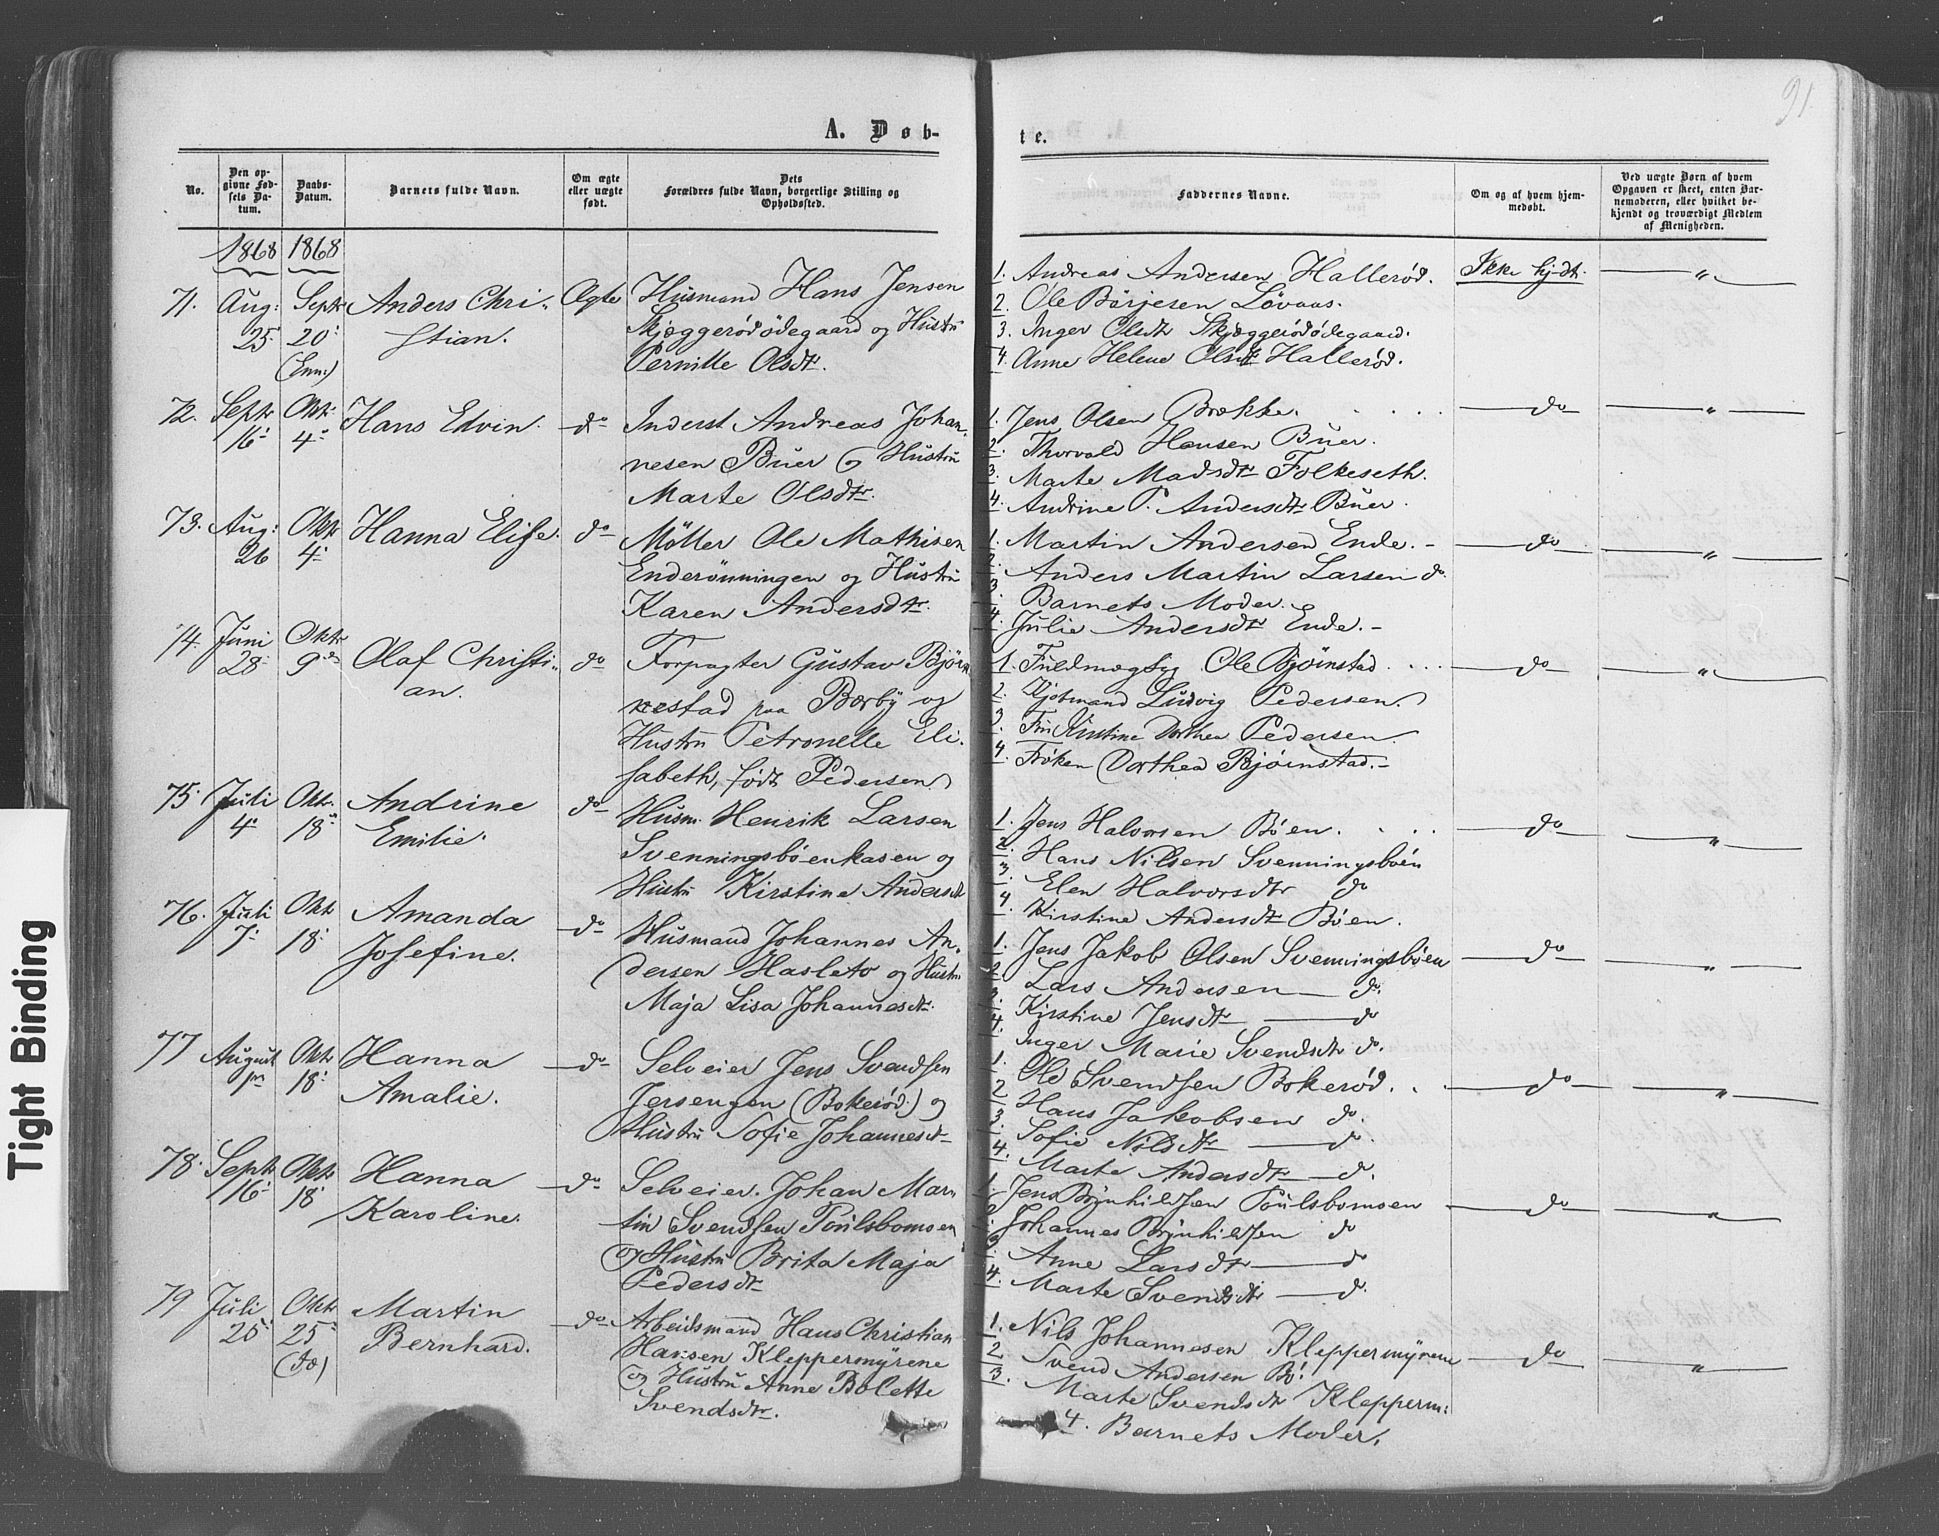 91.
A. Døb-
te.
No.
Den op-
givne Fød-
sels Da-
tum.
Daabs-
Datum.
Barnets fulde Navn.
Om ægte
eller uægte
født.
Dets
Forældres fulde Navn, borgerlige Stilling og
Opholdssted.
Faddernes Navne.
Om og af hvem hjem-
medøbt.
Ved uægte Børn af hvem
Opgaven er skeet, enten Bar-
nemoderen, eller hvilket be-
kjendt og troværdigt Medlem
af Menigheden.
1868 1868
71. Aug: 25 Septr 20: (Enn:)
Anders Chri-
stian.
Ægte
Husmand Hans Jensen
Skjeggerødødegaard og Hustru
Pernille Olsdtr.
1. Andreas Andersen Hallerød.
2. Ole Børjesen Løvaas.
3. Inger Olsdtr Skjeggerødødegaard.
4. Anne Helene Olsdtr Hallerød.
Ikke hjdt. "
72. Septr 16: Oktr 4:
Hans Edvin.
do
Inderst Andreas Johan-
nesen Buer og Hustru
Marte Olsdtr.
1. Jens Olsen Brække.
2. Thorvald Hansen Buer.
3. Marte Madsdtr Folkeseth.
4. Andrine P. Andersdtr Buer.
do "
73. Aug: 26 Oktr 4:
Hanna Elise.
do
Møller Ole Mathisen
Enderønningen og Hustru
Karen Andersdtr.
1. Martin Andersen Ende.
2. Anders Martin Larsen do.
3. Barnets Moder.
4. Julie Andersdtr Ende.
do "
74. Juni 28: Oktr 9de
Olaf Christi-
an.
do
Forpagter Gustav Bjørn-
nestad paa Borby og
Hustru Petronelle Eli-
sabeth, født Pedersen
1. Fuldmægtig Ole Bjørnstad.
2. Kjøbmand Ludvig Pedersen.
3. Fru Kirstine Dorthea Pedersen.
4. Frøken Dorthea Bjørnstad.
do "
75. Juli 4: Oktr. 18:
Andrine
Emilie.
do
Husm. Henrik Larsen
Svenningsbøenkasen og
Hustru Kirstine Andersdtr
1. Jens Halvorsen Bøen.
2. Hans Nilsen Svenningsbøen
3. Elen Halvorsdtr do
4. Kirstine Andersdtr Bøen.
do "
76. Juli 7: Oktr 18:
Amanda
Josefine.
do
Husmand Johannes An-
dersen Hasleto og Hustru
Maja Lisa Johannesdtr.
1. Jens Jakob Olsen Svenningsbøen
2. Lars Andersen do.
3. Kirstine Jensdtr do
4. Inger Marie Svendsdtr do.
do "
77 August Oktr 18:
Hanna
Amalie.
do
Selveier Jens Svendsen
Jersengen (Bokerød) og
Hustru Sofie Johannesdtr
1. Ole Svendsen Bokerød.
2 Hans Jakobsen do.
3. Sofie Nilsdtr do.
4. Marte Andersdtr do.
do "
78. Septr 16: Oktr 18:
Hanna
Karoline.
do
Selveier Johan Mar-
tin Svendsen Poulsbomoen
og Hustru Brita Maja
Pedersdtr
1. Jens Brynhildsen Poulsbomoen
2. Johannes Brynhildsen do
3. Anne Larsdtr do
4. Marte Svendsdtr do.
do "
79 Juli 25: Oktr 25: (Io)
Martin
Bernhard.
do
Arbeidsmand Hans Christian
Hansen Kleppermyrene
og Hustru Anne Bolette
Svendsdtr.
1. Nils Johannesen Kleppermyrene
2. Svend Andersen Bø.
3. Marte Svendsdtr Klepperm:
4. Barnets Moder.
do "
Tight Binding